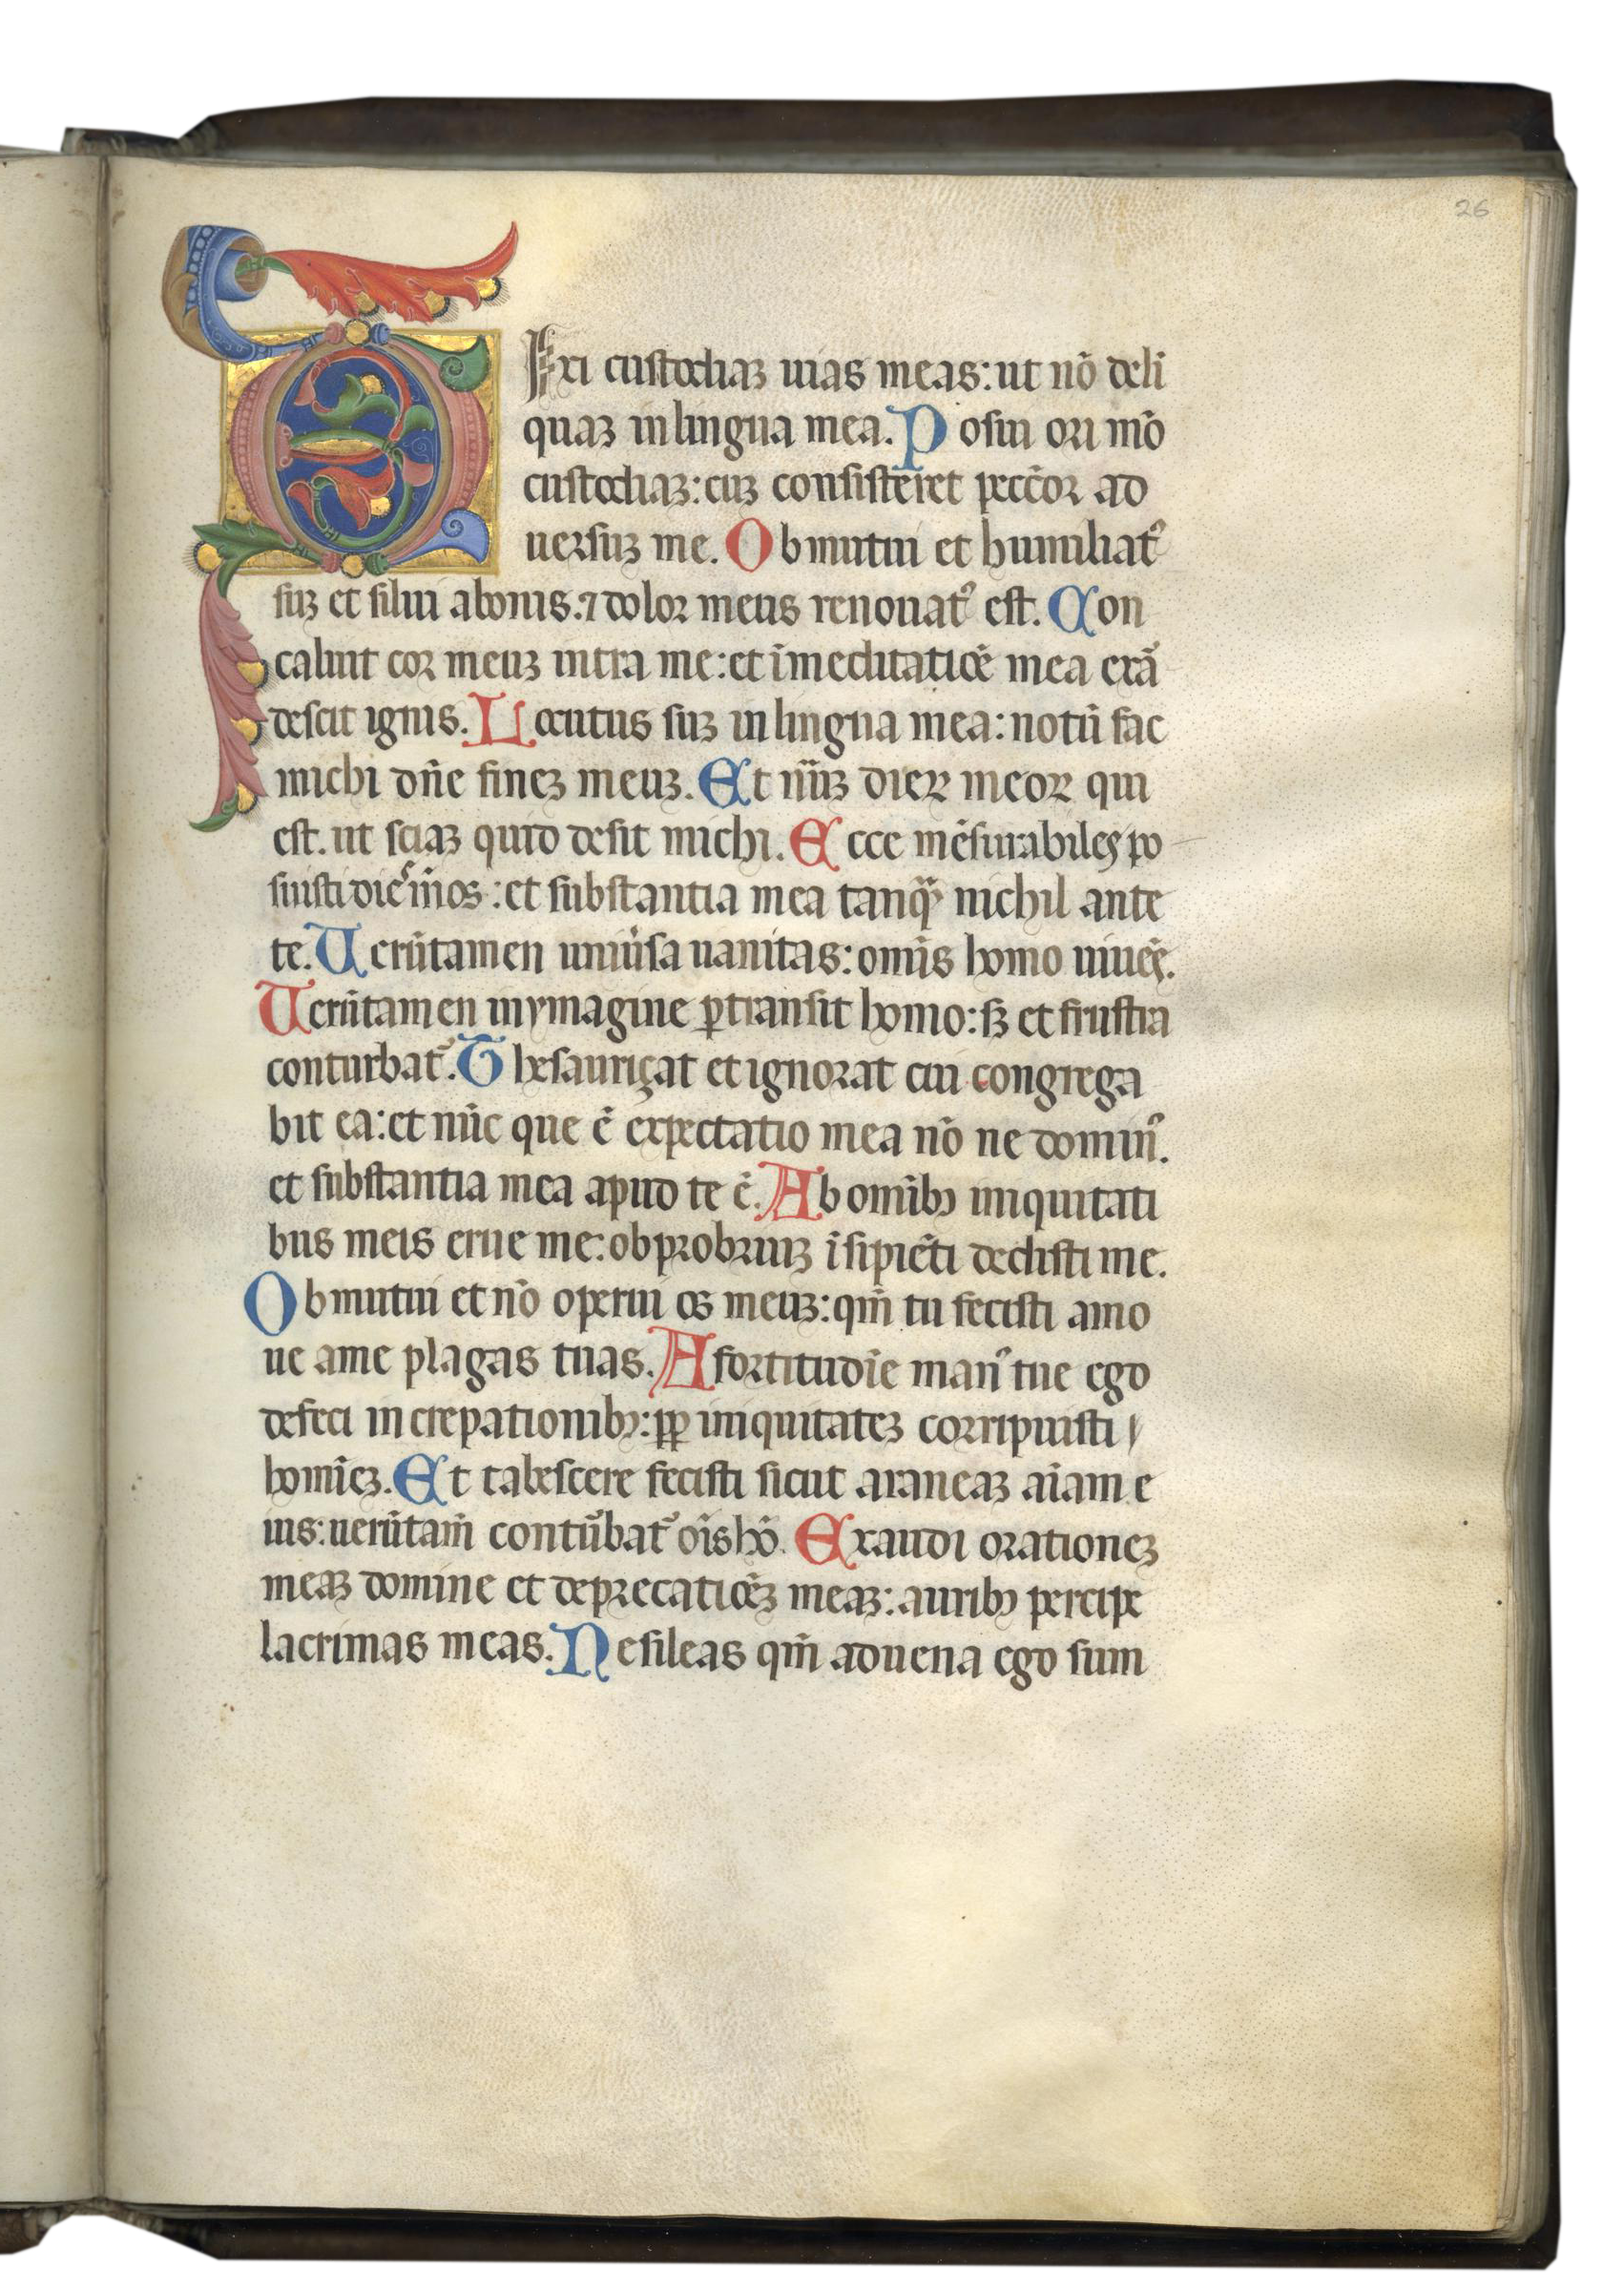 26
DIXI custodiaꝫ uias meas: ut nō deli
quaꝫ in lingua mea. Posui ori mō
custodiaꝫ: cuꝫ consisteret peccōr ad
uersuꝫ me. Obmutui et humiliatꝰ
suꝫ et silui abonis. ⁊ dolor meus renouatꝰ est. Con
caluit cor meuꝫ intra me: et ī meditatiōe mea exā
descit ignis. Locutus suꝫ in lingua mea: notū fac
michi dn̄e fineꝫ meuꝫ. Et nūꝫ dieꝝ meoꝝ qui
est. ut sciaꝫ quid desit michi. Ecce mēsurabiles po
suisti dies mōs: et substantia mea tanqꝫ nichil ante
te. Uerūtamen uniūsa uanitas: omīs homo uiuēs.
Uerūtamen in ymagine ꝑtransit homo: sꝫ et frustra
conturbatᷣ. Thesauriçat et ignorat cui congrega
bit ea: et nūc que ē expectatio mea nō ne dominꝰ.
et substantia mea apud te ē. Ab omībꝫ iniquitati
bus meis erue me: obprobriuꝫ īsipiēti dedisti me.
Obmutui et nō operui os meuꝫ: qm̄ tu fecisti amo
ue a me plagas tuas. A fortitudīe manꝰ tue ego
defeci in crepationibꝫ: ꝓp iniquitateꝫ corripuisti
homīeꝫ. Et tabescere fecisti sicut araneaꝫ aīam e
ius: uerūtam̄ contūbatᷣ oīs hō. Exaudi orationeꝫ
meaꝫ domine et deprecatiōeꝫ meaꝫ: auribꝫ percipe
lacrimas meas. Ne sileas qm̄ aduena ego sum